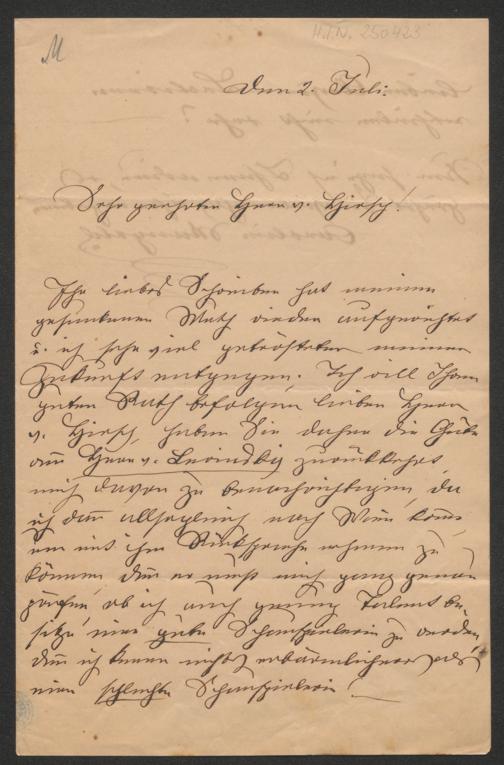 M
H.I.N. 250423
Den 2. Juli.
Sehr geehrter Herr v. Hirsch!
Ihr liebes Schreiben hat meinen
gesunkenen Muth wieder aufgerichtet
u. ich sehe viel getrösteter meiner
Zukunft entgegen. Ich will Ihren
guten Rath befolgen, lieber Herr
v. Hirsch, haben Sie daher die Güte
wenn Herr v. Lewinsky zurückkehrt,
mich davon zu benachrichtigen, da
ich dann allsogleich nach Wien komme
um mit ihm Rücksprache nehmen zu
können, denn er muß mich ganz genau
prüfen, ob ich auch genug Talent be-
sitze, eine gute Schauspielerin zu werden,
denn ich kenne nichts erbärmlicheres als
eine schlechte Schauspielerin!